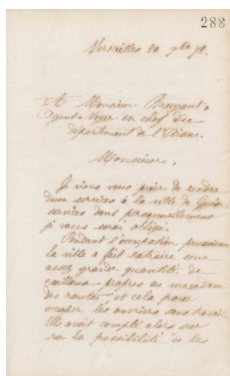 288
Versailles 10 9bre 78.
A Monsieur
Agent-Voyer en chef
département de l'Aisne.
Monsieur,
Je viens vous prier de rendre
deux services à la ville de Guise
services dont personnellement
je vous serai obligé.
Pendant l'occupation prussienne
la ville a fait extraire une
assez grande quantité de
propres au macadam
des routes et cela pour
les ouvriers sans travail.
Elle avait compté alors
sur la possibilité de les